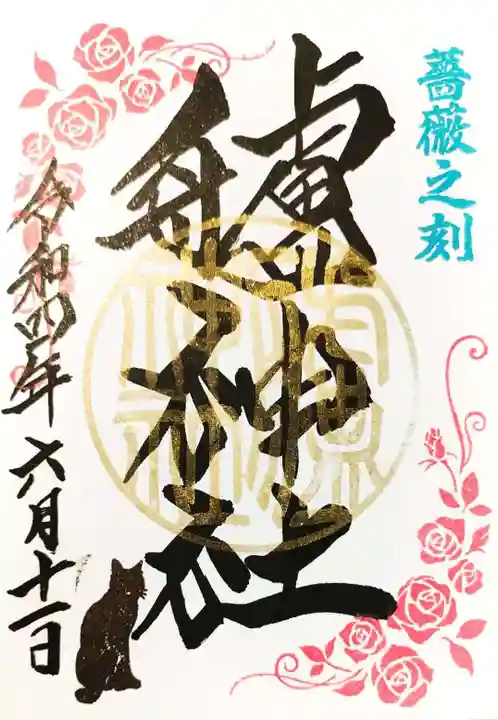 薔薇之刻
神社
令和四年六月十一日